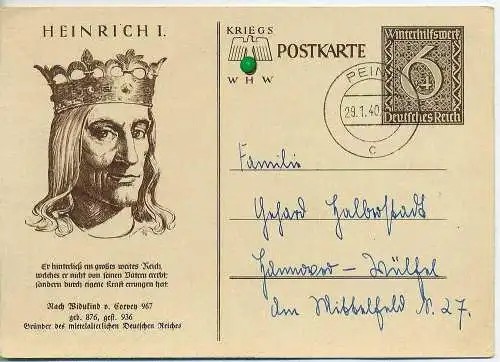 HEINRICH I.
Er hinterließ ein großes weites Reich,
welches er nicht von seinen Vätern ererbt,
sondern durch eigene Kraft errungen hat.
Nach Widukind v. Corvey 967
geb. 876, gest. 936
Gründer des mittelalterlichen Deutschen Reiches
KRIEGS
POSTKARTE
WHW
Winterhilfswerk
6
Deutsches Reich
PEIN
29.1.40
c
Familie
Gehard Halberstadt
Hannover-Wülfel
Am Mittelfeld N. 27.